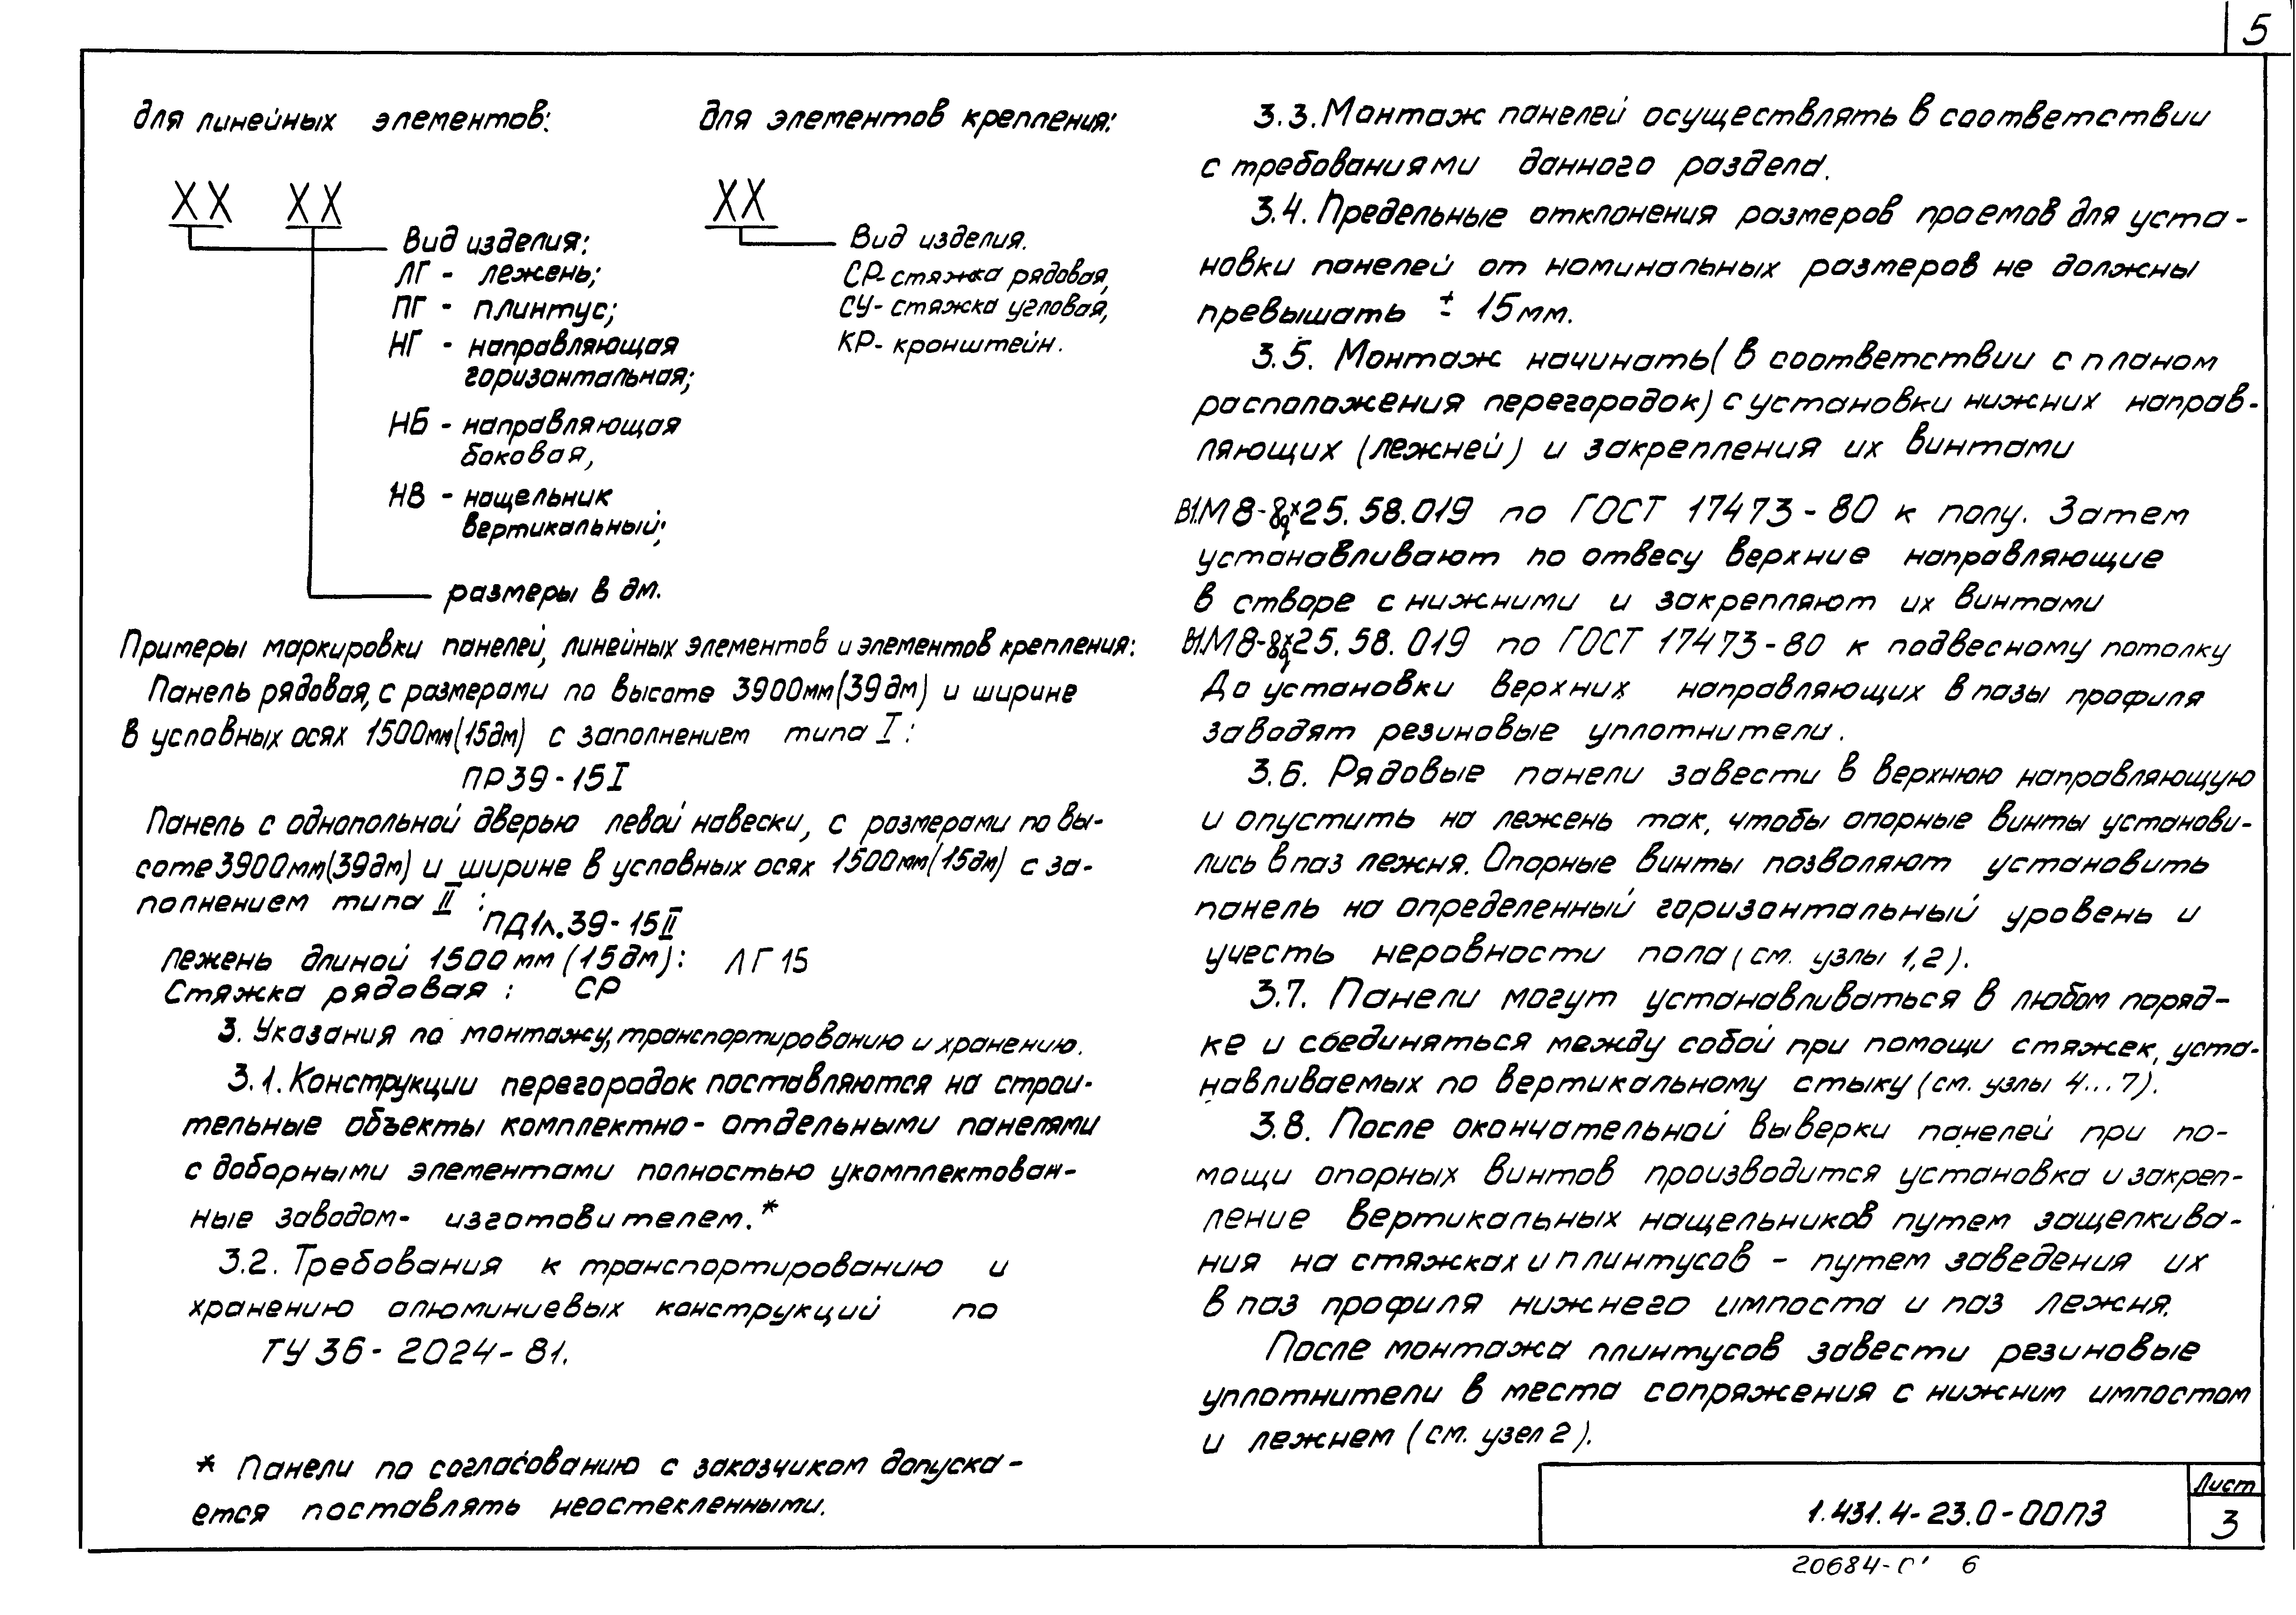 5
для линейных элементов:
XX XX
Вид изделия:
ЛГ - лежень;
ПГ - плинтус;
НГ - направляющая
горизонтальная;
НБ - направляющая
боковая,
НВ - нащельник
вертикальный;
размеры в дм.
для элементов крепления:
XX
Вид изделия.
СР- стяжка рядовая,
СУ- стяжка угловая,
КР- кронштейн.
Примеры маркировки панелей, линейных элементов и элементов крепления:
Панель рядовая, с размерами по высоте 3900мм(39дм) и ширине
в условных осях 1500мм(15дм) с заполнением типа I:
ПР39-15I
Панель с однопольной дверью левой навески, с размерами по вы-
соте 3900мм(39дм) и ширине в условных осях 1500мм(15дм) с за-
полнением типа II :
ПД1л.39-15II
лежень длиной 1500мм (15дм): ЛГ15
Стяжка рядовая : СР
3. Указания по монтажу, транспортированию и хранению.
3.1. Конструкции перегородок поставляются на строи-
тельные объекты комплектно- отдельными панелями
с доборными элементами полностью укомплектован-
ные заводом- изготовителем.*
3.2. Требования к транспортированию и
хранению алюминиевых конструкций по
ТУ36-2024-81.
* Панели по согласованию с заказчиком допуска-
ется поставлять неостекленными.
3.3. Монтаж панелей осуществлять в соответствии
с требованиями данного раздела.
3.4. Предельные отклонения размеров проемов для уста-
новки панелей от номинальных размеров не должны
превышать ± 15мм.
3.5. Монтаж начинать (в соответствии с планом
расположения перегородок) с установки нижних направ-
ляющих (лежней) и закрепления их винтами
В1.М8-8gx25.58.019 по ГОСТ 17473-80 к полу. Затем
устанавливают по отвесу верхние направляющие
в створе с нижними и закрепляют их винтами
В1.М8-8gx25.58.019 по ГОСТ 17473-80 к подвесному потолку
До установки верхних направляющих в пазы профиля
заводят резиновые уплотнители.
3.6. Рядовые панели завести в верхнюю направляющую
и опустить на лежень так, чтобы опорные винты установи-
лись в паз лежня. Опорные винты позволяют установить
панель на определенный горизонтальный уровень и
учесть неровности пола (см. узлы 1,2).
3.7. Панели могут устанавливаться в любом поряд-
ке и соединяться между собой при помощи стяжек, уста-
навливаемых по вертикальному стыку (см. узлы 4...7).
3.8. После окончательной выверки панелей при по-
мощи опорных винтов производится установка и закреп-
ление вертикальных нащельников путем защелкива-
ния на стяжках и плинтусов - путем заведения их
в паз профиля нижнего импоста и паз лежня.
После монтажа плинтусов завести резиновые
уплотнители в места сопряжения с нижним импостом
и лежнем (см. узел 2).
1.431.4-23.0-00ПЗ
Лист
3
20684- 6